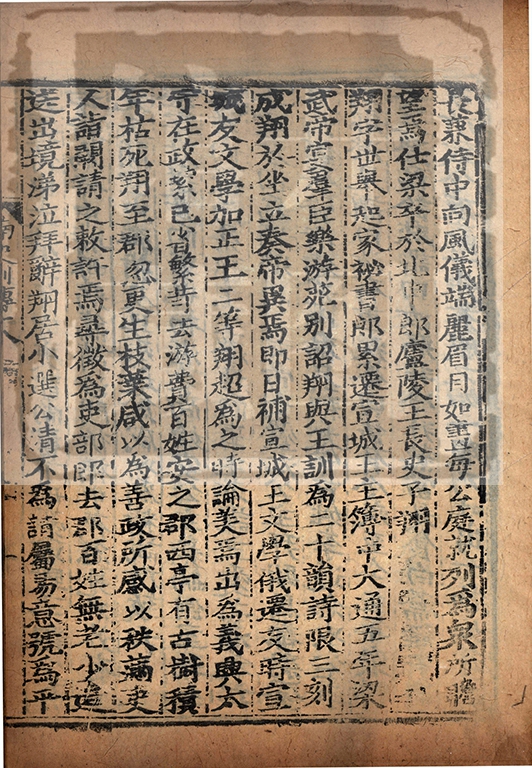 長兼侍中向風儀端麗眉目如畫每公庭就列爲衆所瞻
望焉仕梁卒於北中郎廬陵王長史子翔
翔字世舉起家祕書郎累遷宣城王主簿中大通五年梁
武帝宴羣臣樂游苑別詔翔與王訓爲二十韻詩限三刻
成翔於坐立奏帝異焉即日補宣城王文學俄遷友時宣
城友文學加正王二等翔超爲之時論美焉出爲義興太
守在政㓗己省繁苛去游費百姓安之郡西亭有古樹積
年枯死翔至郡忽更生枝葉咸以爲善政所感以秩滿吏
人詣闕請之敕許焉尋徵爲吏部郎去郡百姓無老少追
送出境涕泣拜辭翔居小選公清不爲請屬易意號爲平